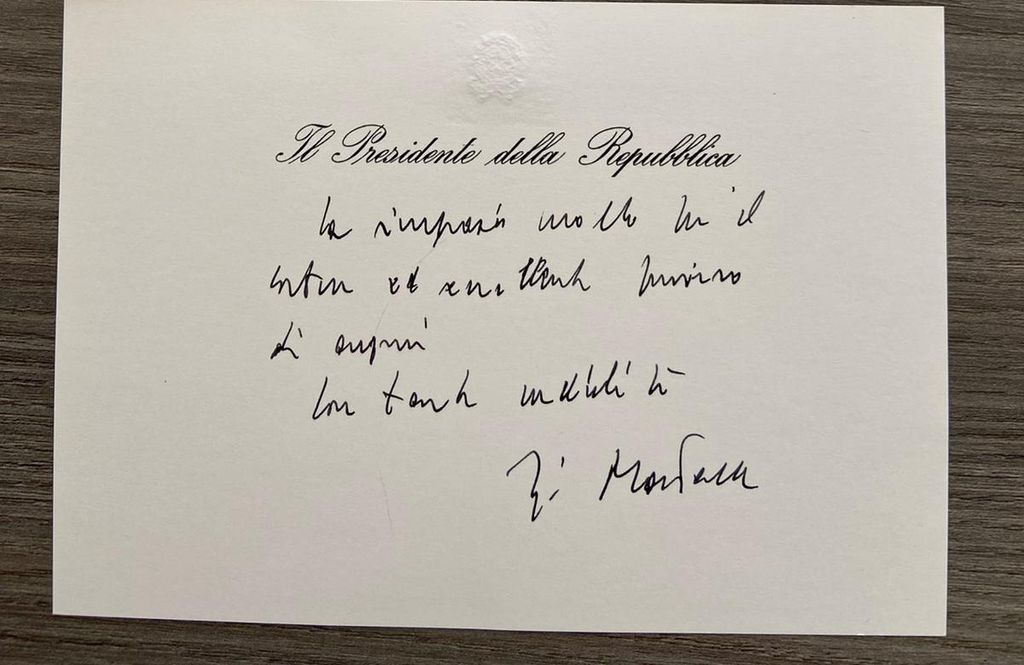 Il Presidente della Repubblica
La ringrazio molto per il
cortese ed eccellente pensiero
di auguri
Con tanta cordialità
Mattarella